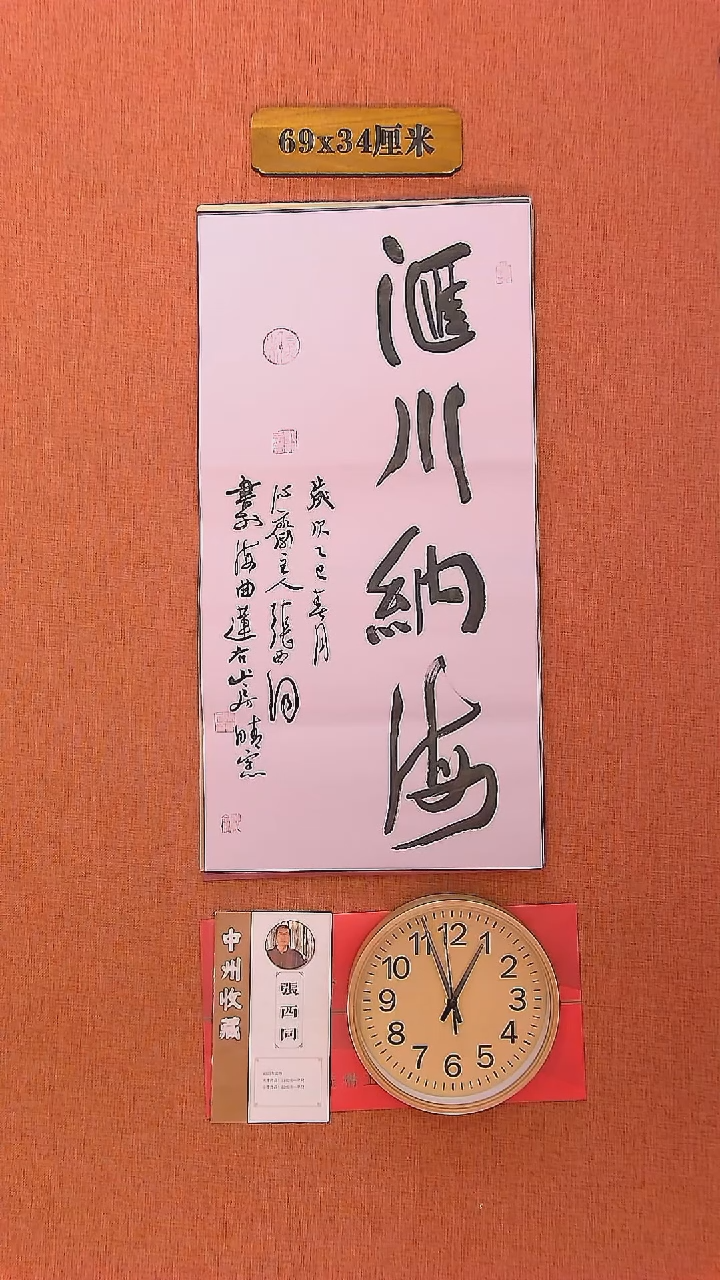 69x34厘米
滙川納海
歲次乙巳春月
心齋主人張西同
書於海曲蓮右山房晴窓
中州收藏
張西同
12
1
2
3
4
5
6
7
8
9
10
11